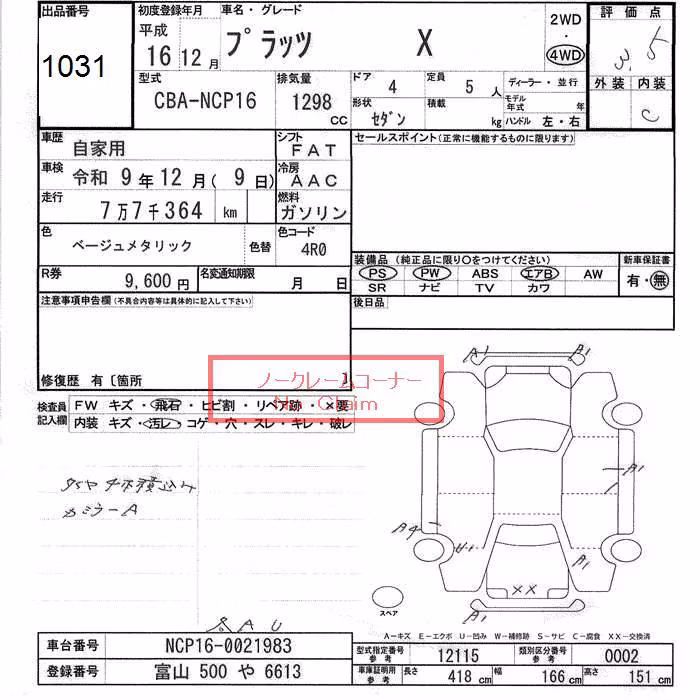 出品番号
1031
初度登録年月
平成
16 12 月
車名・グレード
プラッツ X
2WD
・
4WD
評価点
3.5
外装 内装
C
型式
CBA-NCP16
排気量
1298
CC
ドア
4
定員
5 人
ディーラー・並行
形状
セダン
積載
kg
モデル年式 年
ハンドル 左・右
車歴
自家用
シフト
FAT
車検
令和 9 年 12 月( 9 日)
冷房
AAC
走行
7万7千364 km
燃料
ガソリン
色
ベージュメタリック
色替
色コード
4R0
R券
9,600 円
名変通知期限
月 日
セールスポイント(正常に機能するものに限ります)
装備品(純正品に限り○をつけてください)
PS PW ABS エアB AW
SR ナビ TV カワ
新車保証書
有・無
後日品
注意事項申告欄(不具合内容等は具体的に記入して下さい)
修復歴 有〔箇所 〕
ノークレームコーナー
No Claim
検査員
記入欄
FW キズ・飛石・ヒビ割・リペア跡・×要
内装 キズ・汚レ・コゲ・穴・スレ・キレ・破レ
タイヤ4本積込み
カミラーA
A1 A1
A1
A4
U1
A1
XX
A1
スペア
A-キズ E-エクボ U-凹み W-補修跡 S-サビ C-腐食 XX-交換済
車台番号
NCP16-0021983
登録番号
富山 500 や 6613
型式指定番号
参考
12115
類別区分番号
参考
0002
車庫証明用
参考
長さ
418 cm
幅
166 cm
高さ
151 cm